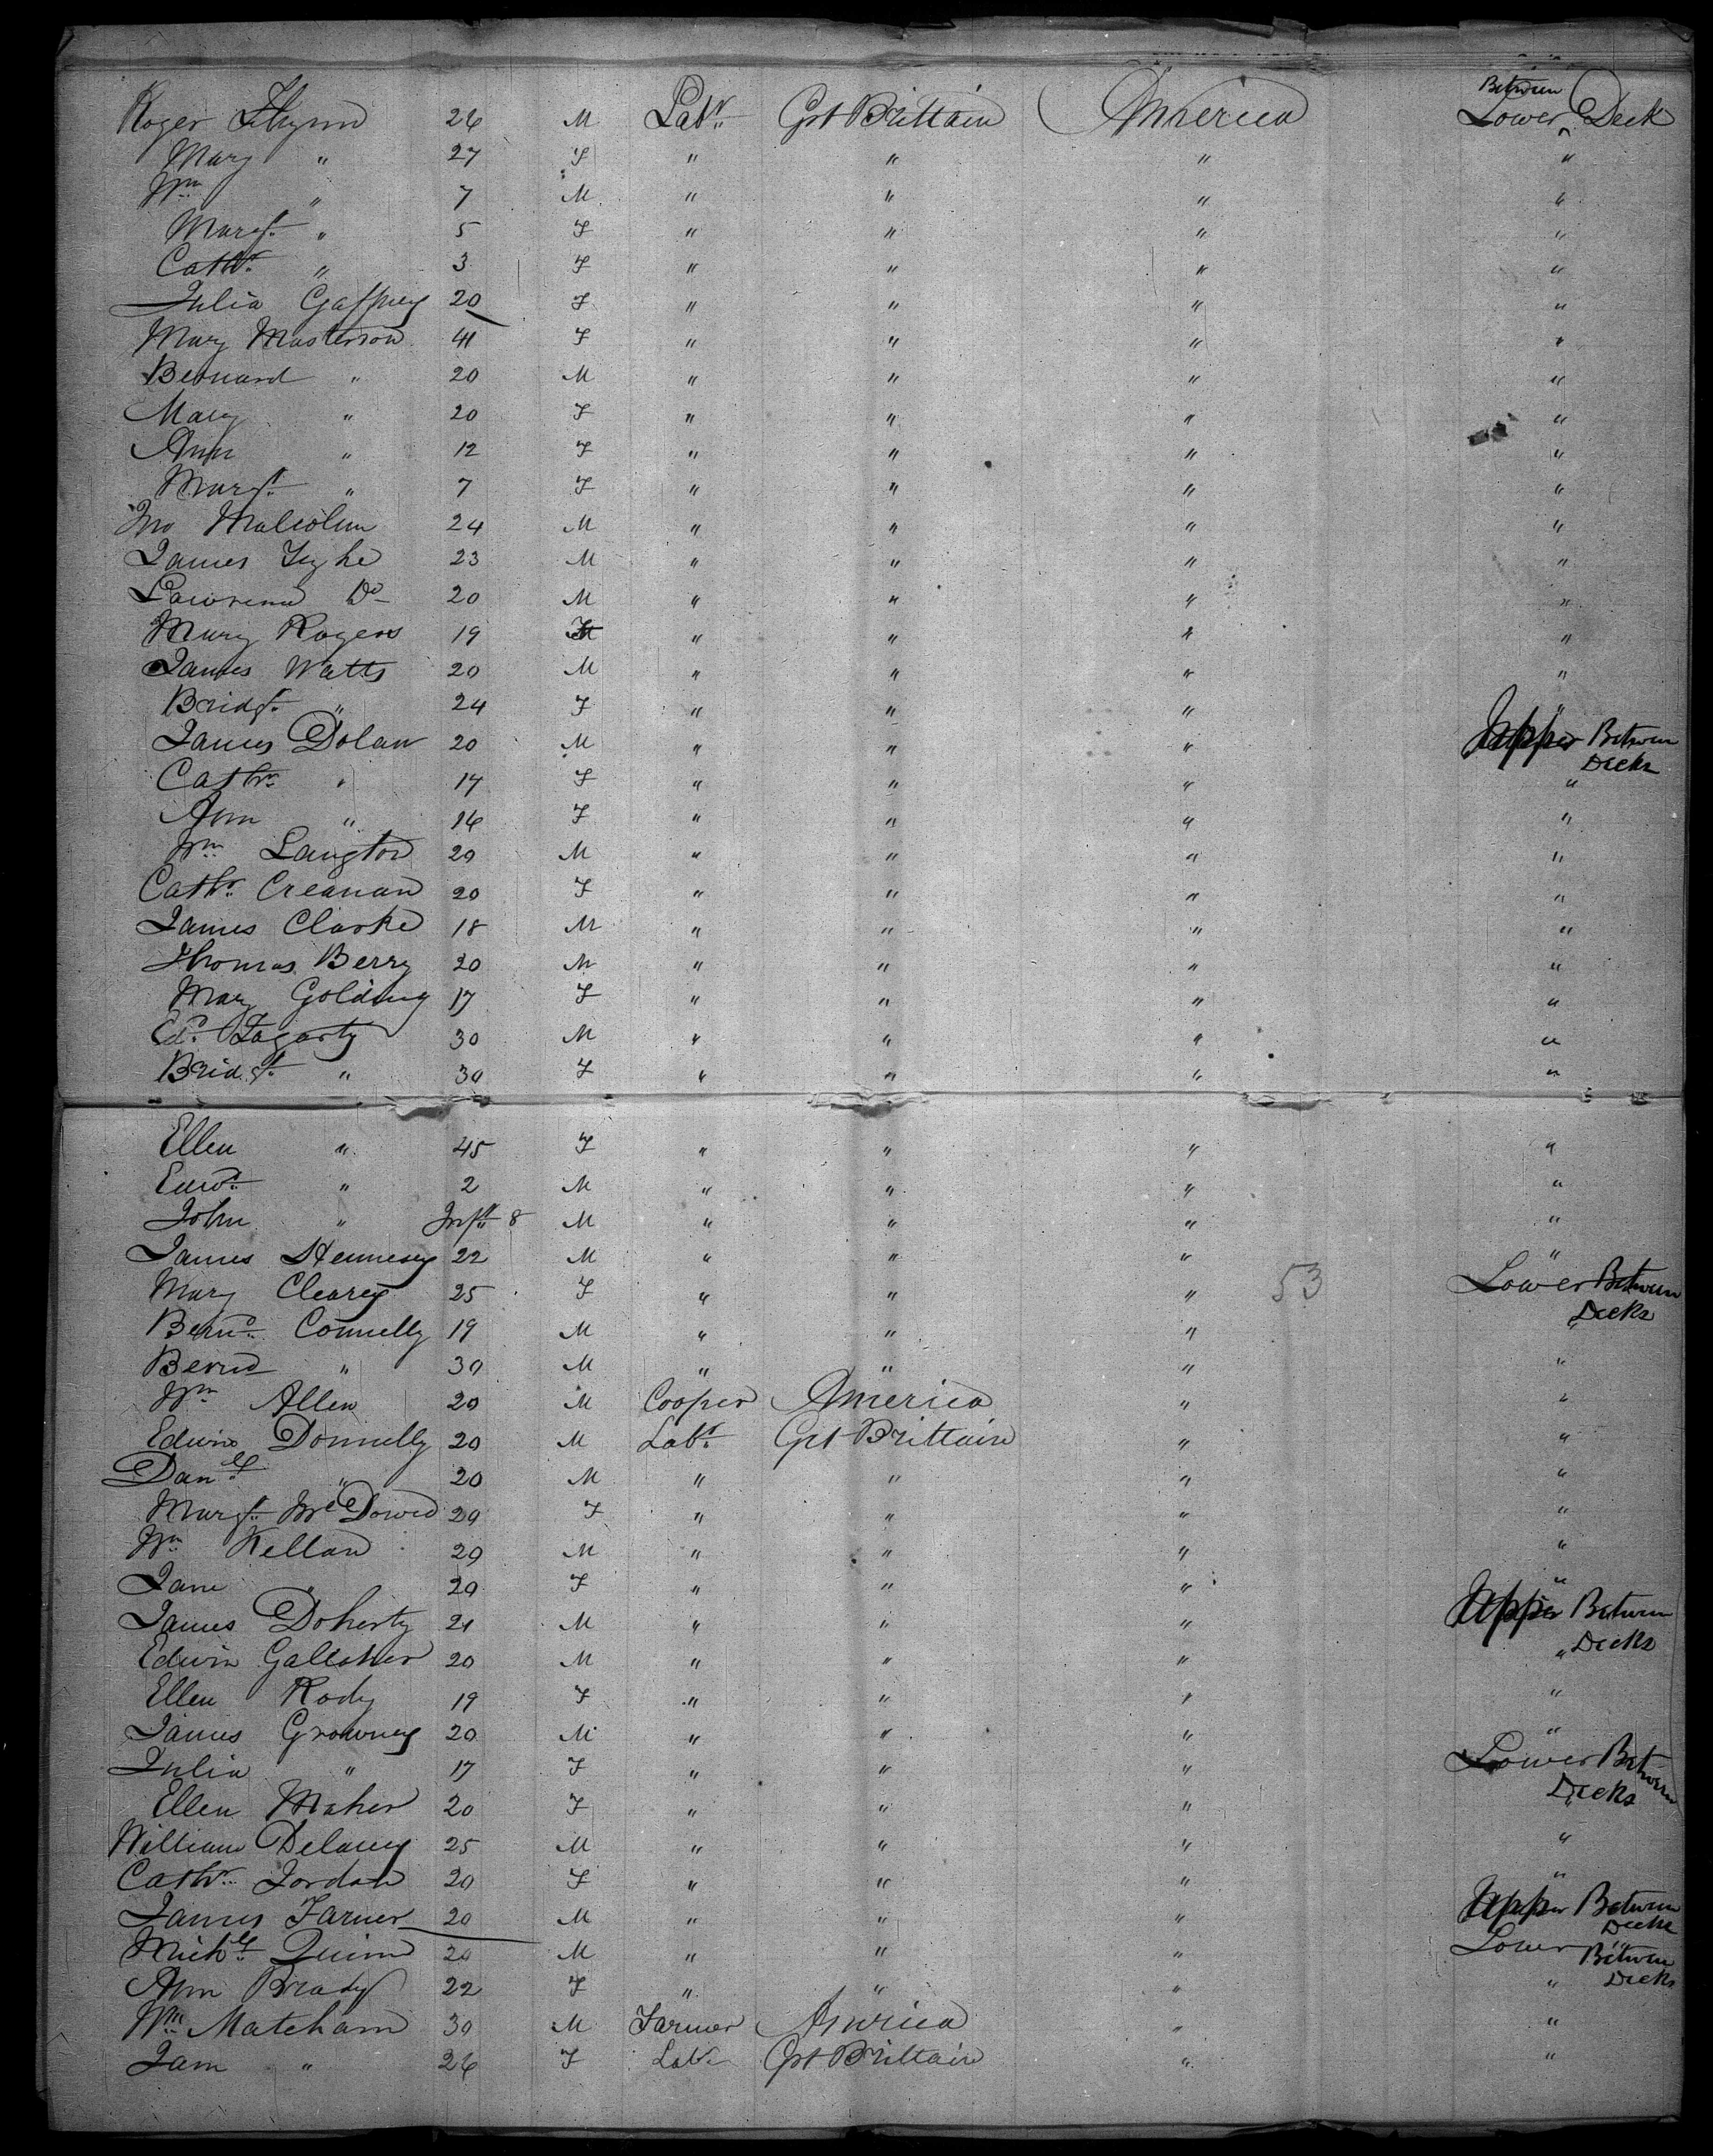 Roger Flynn 26 M Labr. Grt Brittain America Lower Between Deck
Mary " 27 F " " " "
Wm " 7 M " " " "
Margt. " 5 F " " " "
Cathr. " 3 F " " " "
Julia Gaffney 20 F " " " "
Mary Masterson 41 F " " " "
Bernard " 20 M " " " "
Mary " 20 F " " " "
Ann " 12 F " " " "
Margt. " 7 F " " " "
Jno Malcolm 24 M " " " "
James Tyghe 23 M " " " "
Lawrence Do 20 M " " " "
Mary Rogers 19 F " " " "
James Watts 20 M " " " "
Bridgt. " 24 F " " " "
James Dolan 20 M " " " Upper Between Decks
Cathr. " 17 F " " " "
Ann " 16 F " " " "
Wm Langton 20 M " " " "
Cathr. Creanan 20 F " " " "
James Clarke 18 M " " " "
Thomas Berry 20 M " " " "
Mary Golding 17 F " " " "
Ed. Fogarty 30 M " " " "
Bridgt. " 30 F " " " "
Ellen " 45 F " " " "
Edwd. " 2 M " " " "
John " Inft. 8 M " " " "
James Hennesey 22 M " " " "
Mary Clearey 25 F " " " 53 Lower Between Decks
Bernd. Connelly 19 M " " " "
Bernd " 30 M " " " "
Wm Allen 20 M Cooper America " "
Edwin Donnelly 20 M Labr. Grt Brittain " "
Danel. " 20 M " " " "
Margt. McDowd 20 F " " " "
Wm Kellan 20 M " " " "
Jane " 20 F " " " "
James Doherty 21 M " " " Upper Between Decks
Edwin Gallaher 20 M " " " "
Ellen Rody 19 F " " " "
James Growney 20 M " " " "
Julia " 17 F " " " Lower Between Decks
Ellen Maher 20 F " " " "
William Delaney 25 M " " " "
Cathr. Jordan 20 F " " " "
James Farner 20 M " " " Upper Between Decks
Michl. Quinn 20 M " " " Lower Between Decks
Ann Brady 22 F " " " "
Wm. Matcham 30 M Farmer America " "
Jane " 26 F Labr Grt Brittain " "